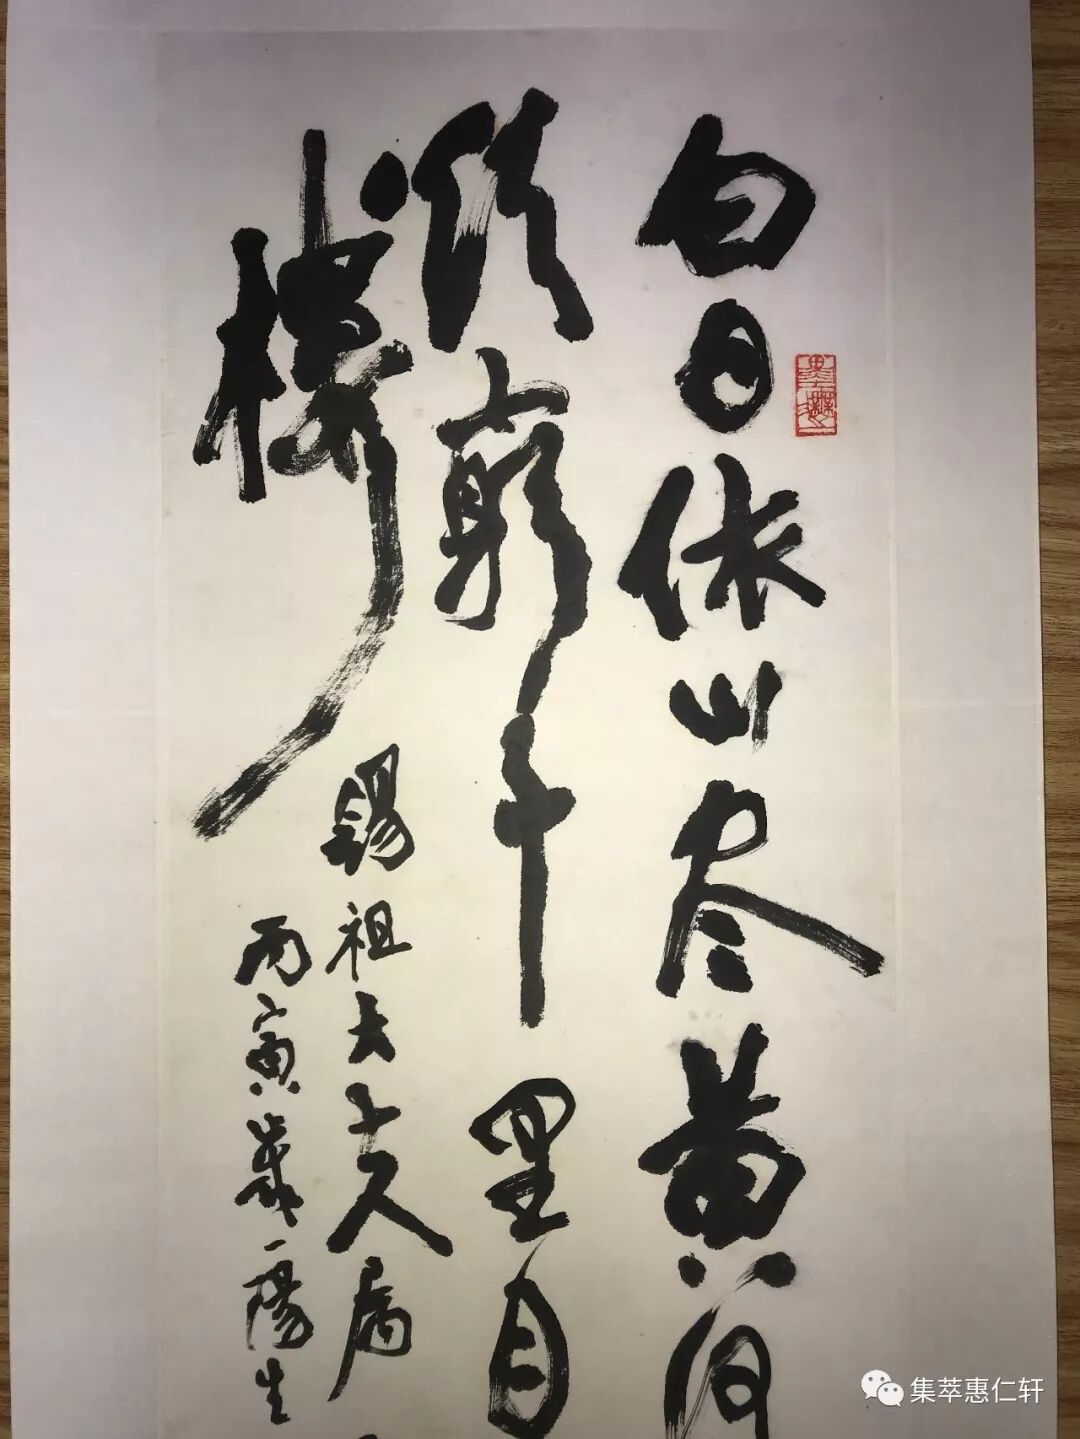 白日依山尽黄河
欲穷千里目
楼
錫祖大丈人属
丙寅歲一陽生
集萃惠仁轩